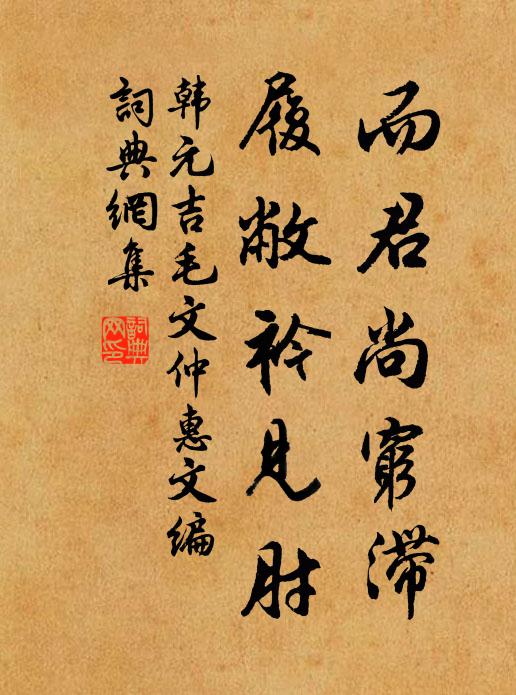 而君尚窮滯
履敝衿見肘
韩元吉毛文仲惠文编
詞典網集
詞典网印